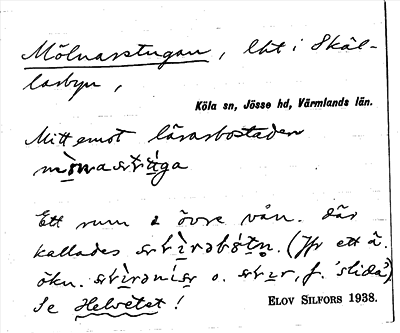 Mölnarstugan, lht i Skäl-
larbyn,
Köla sn, Jösse hd, Värmlands län.
Mitt emot lärarbostaden
Ett rum i övre vån. där
kallades (Jfr ett ä.
ökn. o. f. 'slida')
Se Helvetet!
ELOV SILFORS 1938.